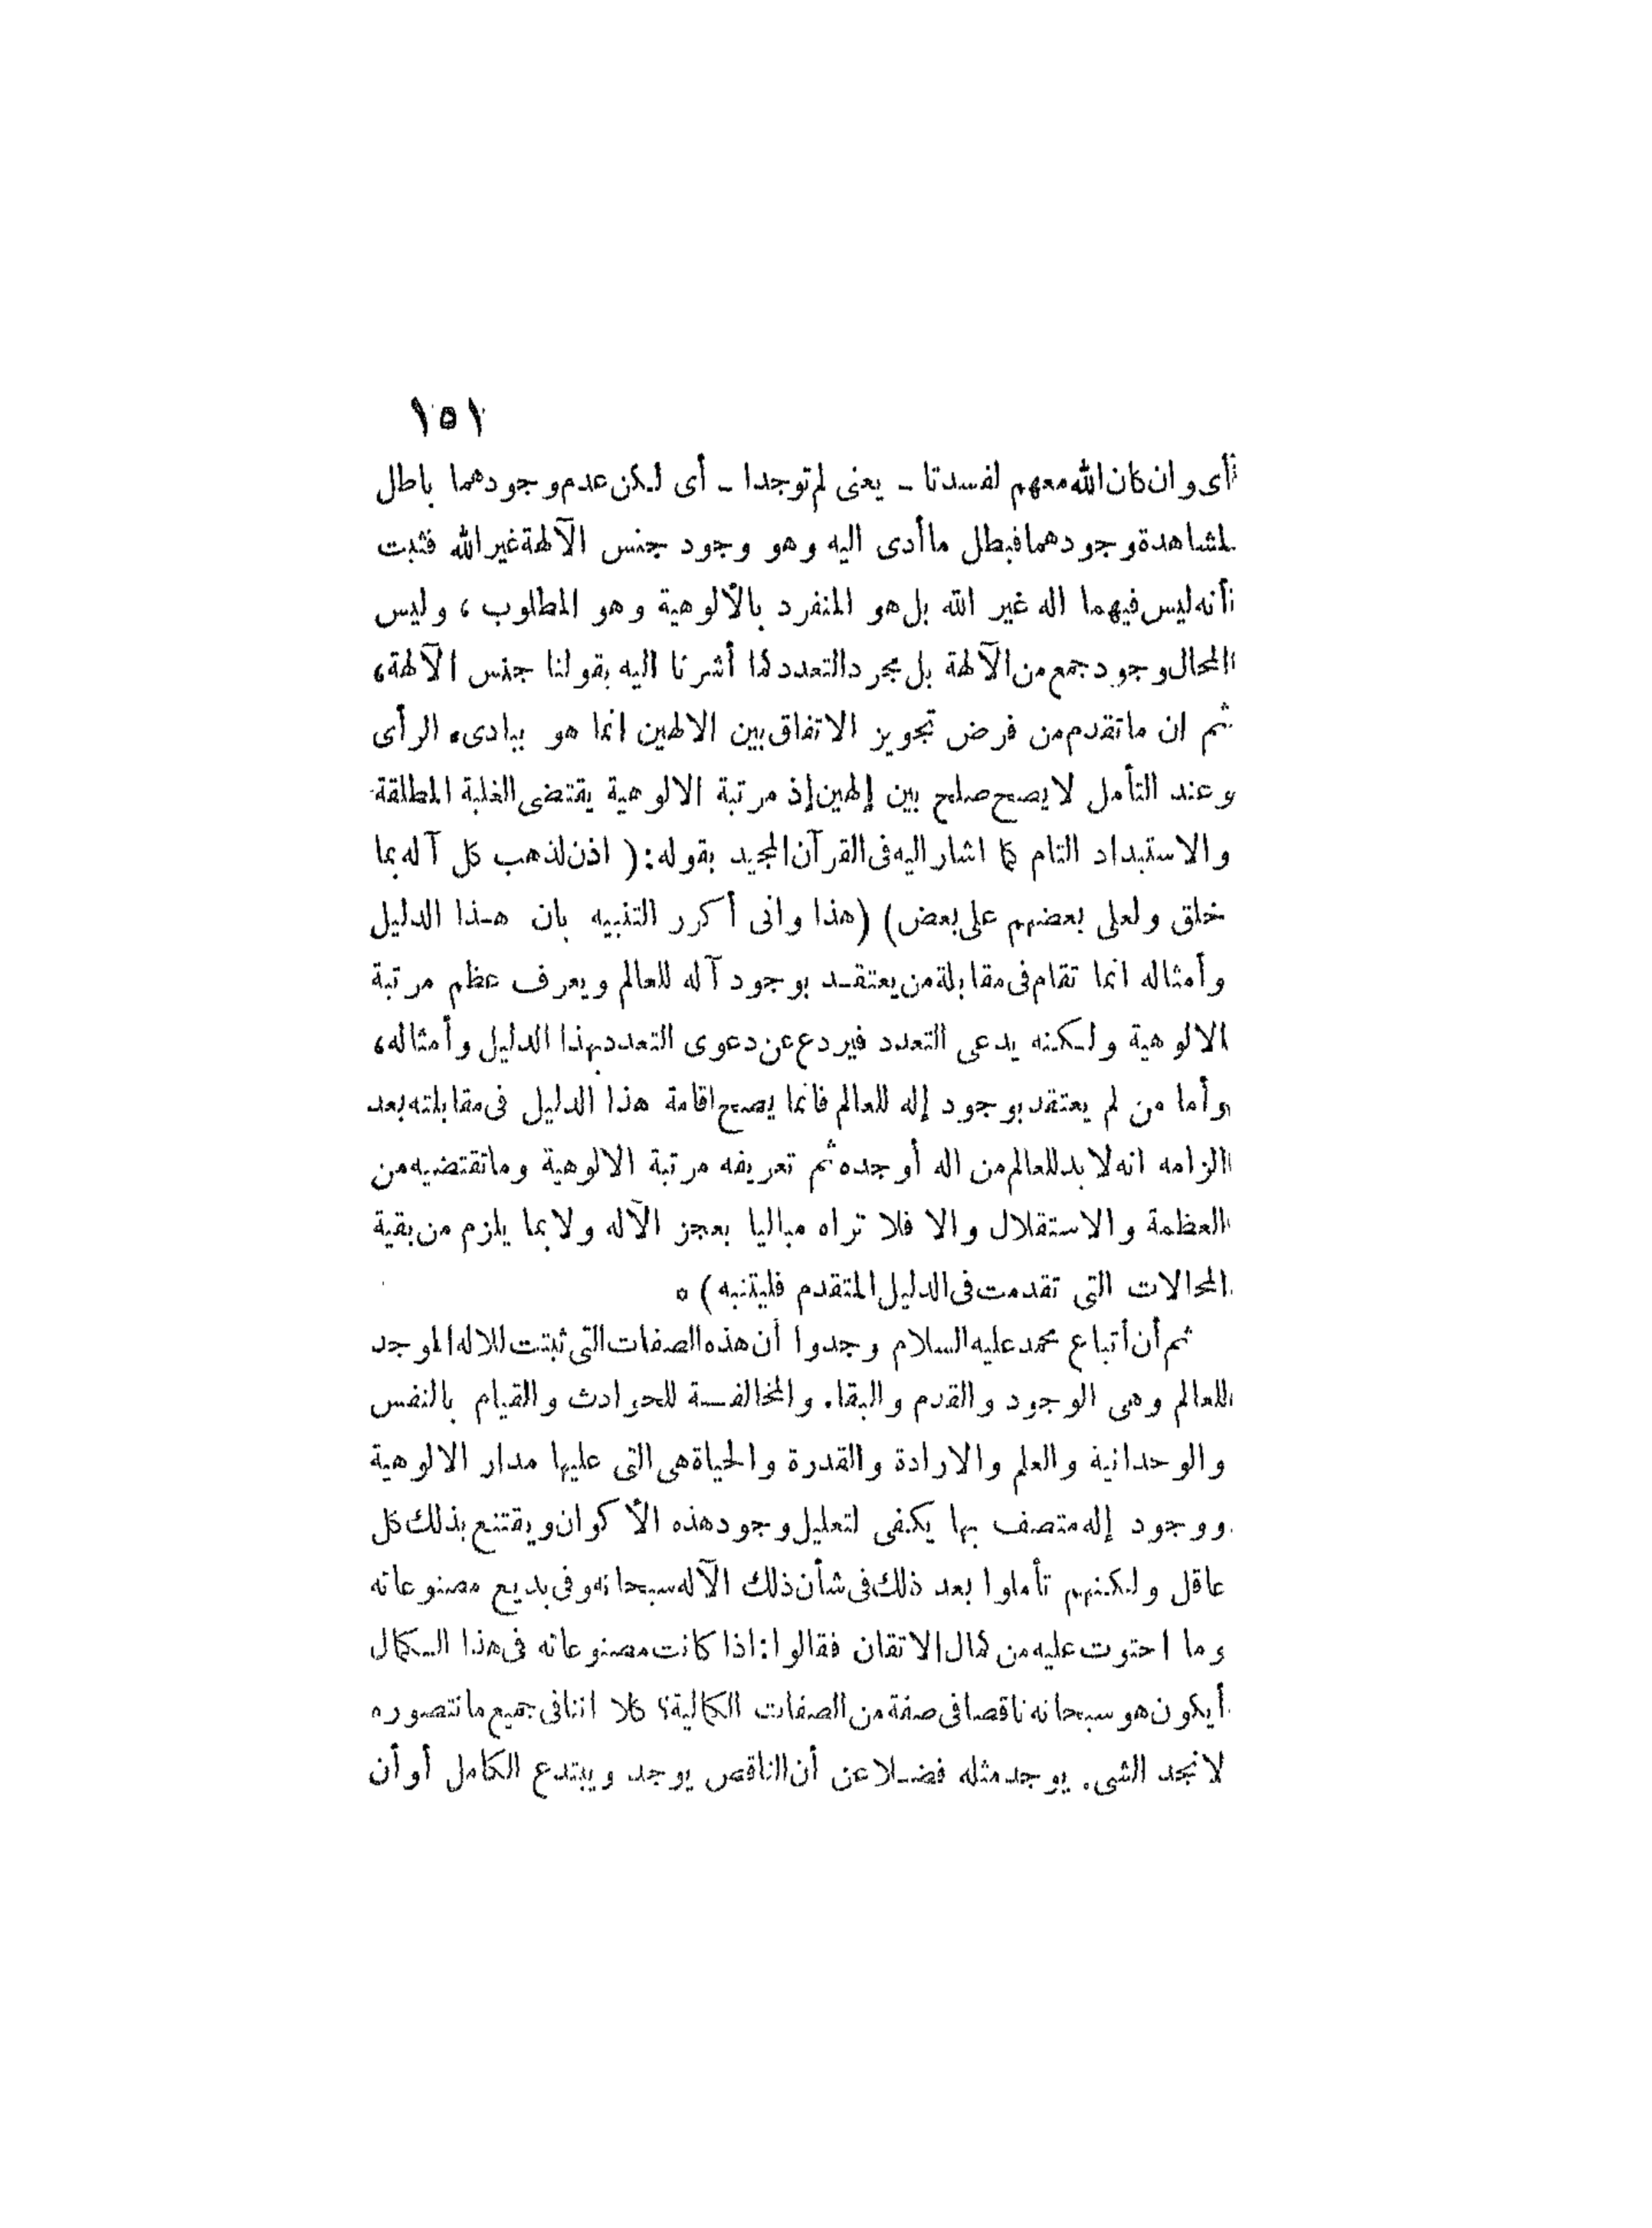 ١٥١
أى وان كان الله معهم لفسدتا ـ يعنى لم توجدا ـ أى لكن عدم وجودهما باطل
لمشاهدة وجودهما فبطل ما أدى اليه وهو وجود جنس الآلهة غير الله فثبت
أنه ليس فيهما اله غير الله بل هو المنفرد بالألوهية وهو المطلوب ، وليس
المحال وجود جمع من الآلهة بل مجرد التعدد كما أشرنا اليه بقولنا جنس الآلهة ،
ثم ان ما تقدم من فرض تجويز الاتفاق بين الالهين انما هو ببادىء الرأى
وعند التأمل لا يصح صلح بين إلهين إذ مرتبة الالوهية يقتضى الغلبة المطلقة
والاستبداد التام كما اشار اليه فى القرآن المجيد بقوله : ( اذن لذهب كل آله بما
خلق ولعلى بعضهم على بعض ) ( هذا وانى أكرر التنبيه بان هذا الدليل
وأمثاله انما تقام فى مقابلة من يعتقد بوجود آله للعالم ويعرف عظم مرتبة
الالوهية ولكنه يدعى التعدد فيردع عن دعوى التعدد بهذا الدليل وأمثاله ،
وأما من لم يعتقد بوجود إله للعالم فانما يصح اقامة هذا الدليل فى مقابلته بعد
الزامه انه لا بد للعالم من اله أوجده ثم تعريفه مرتبة الالوهية وما تقتضيه من
العظمة والاستقلال والا فلا تراه مباليا بعجز الآله ولا بما يلزم من بقية
المحالات التى تقدمت فى الدليل المتقدم فليتنبه ) ٥
ثم أن أتباع محمد عليه السلام وجدوا أن هذه الصفات التى ثبتت للاله الموجد
للعالم وهى الوجود والقدم والبقاء والمخالفة للحوادث والقيام بالنفس
والوحدانية والعلم والارادة والقدرة والحياة هى التى عليها مدار الالوهية
ووجود إله متصف بها يكفى لتعليل وجود هذه الأكوان ويقتنع بذلك كل
عاقل ولكنهم تأملوا بعد ذلك فى شأن ذلك الآله سبحانه وفى بديع مصنوعاته
وما احتوت عليه من كمال الاتقان فقالوا : اذا كانت مصنوعاته فى هذا الكمال
أيكون هو سبحانه ناقصا فى صفة من الصفات الكمالية؟ كلا اننا فى جميع ما نتصوره
لا نجد الشىء يوجد مثله فضلا عن أن الناقص يوجد ويبتدع الكامل أو أن